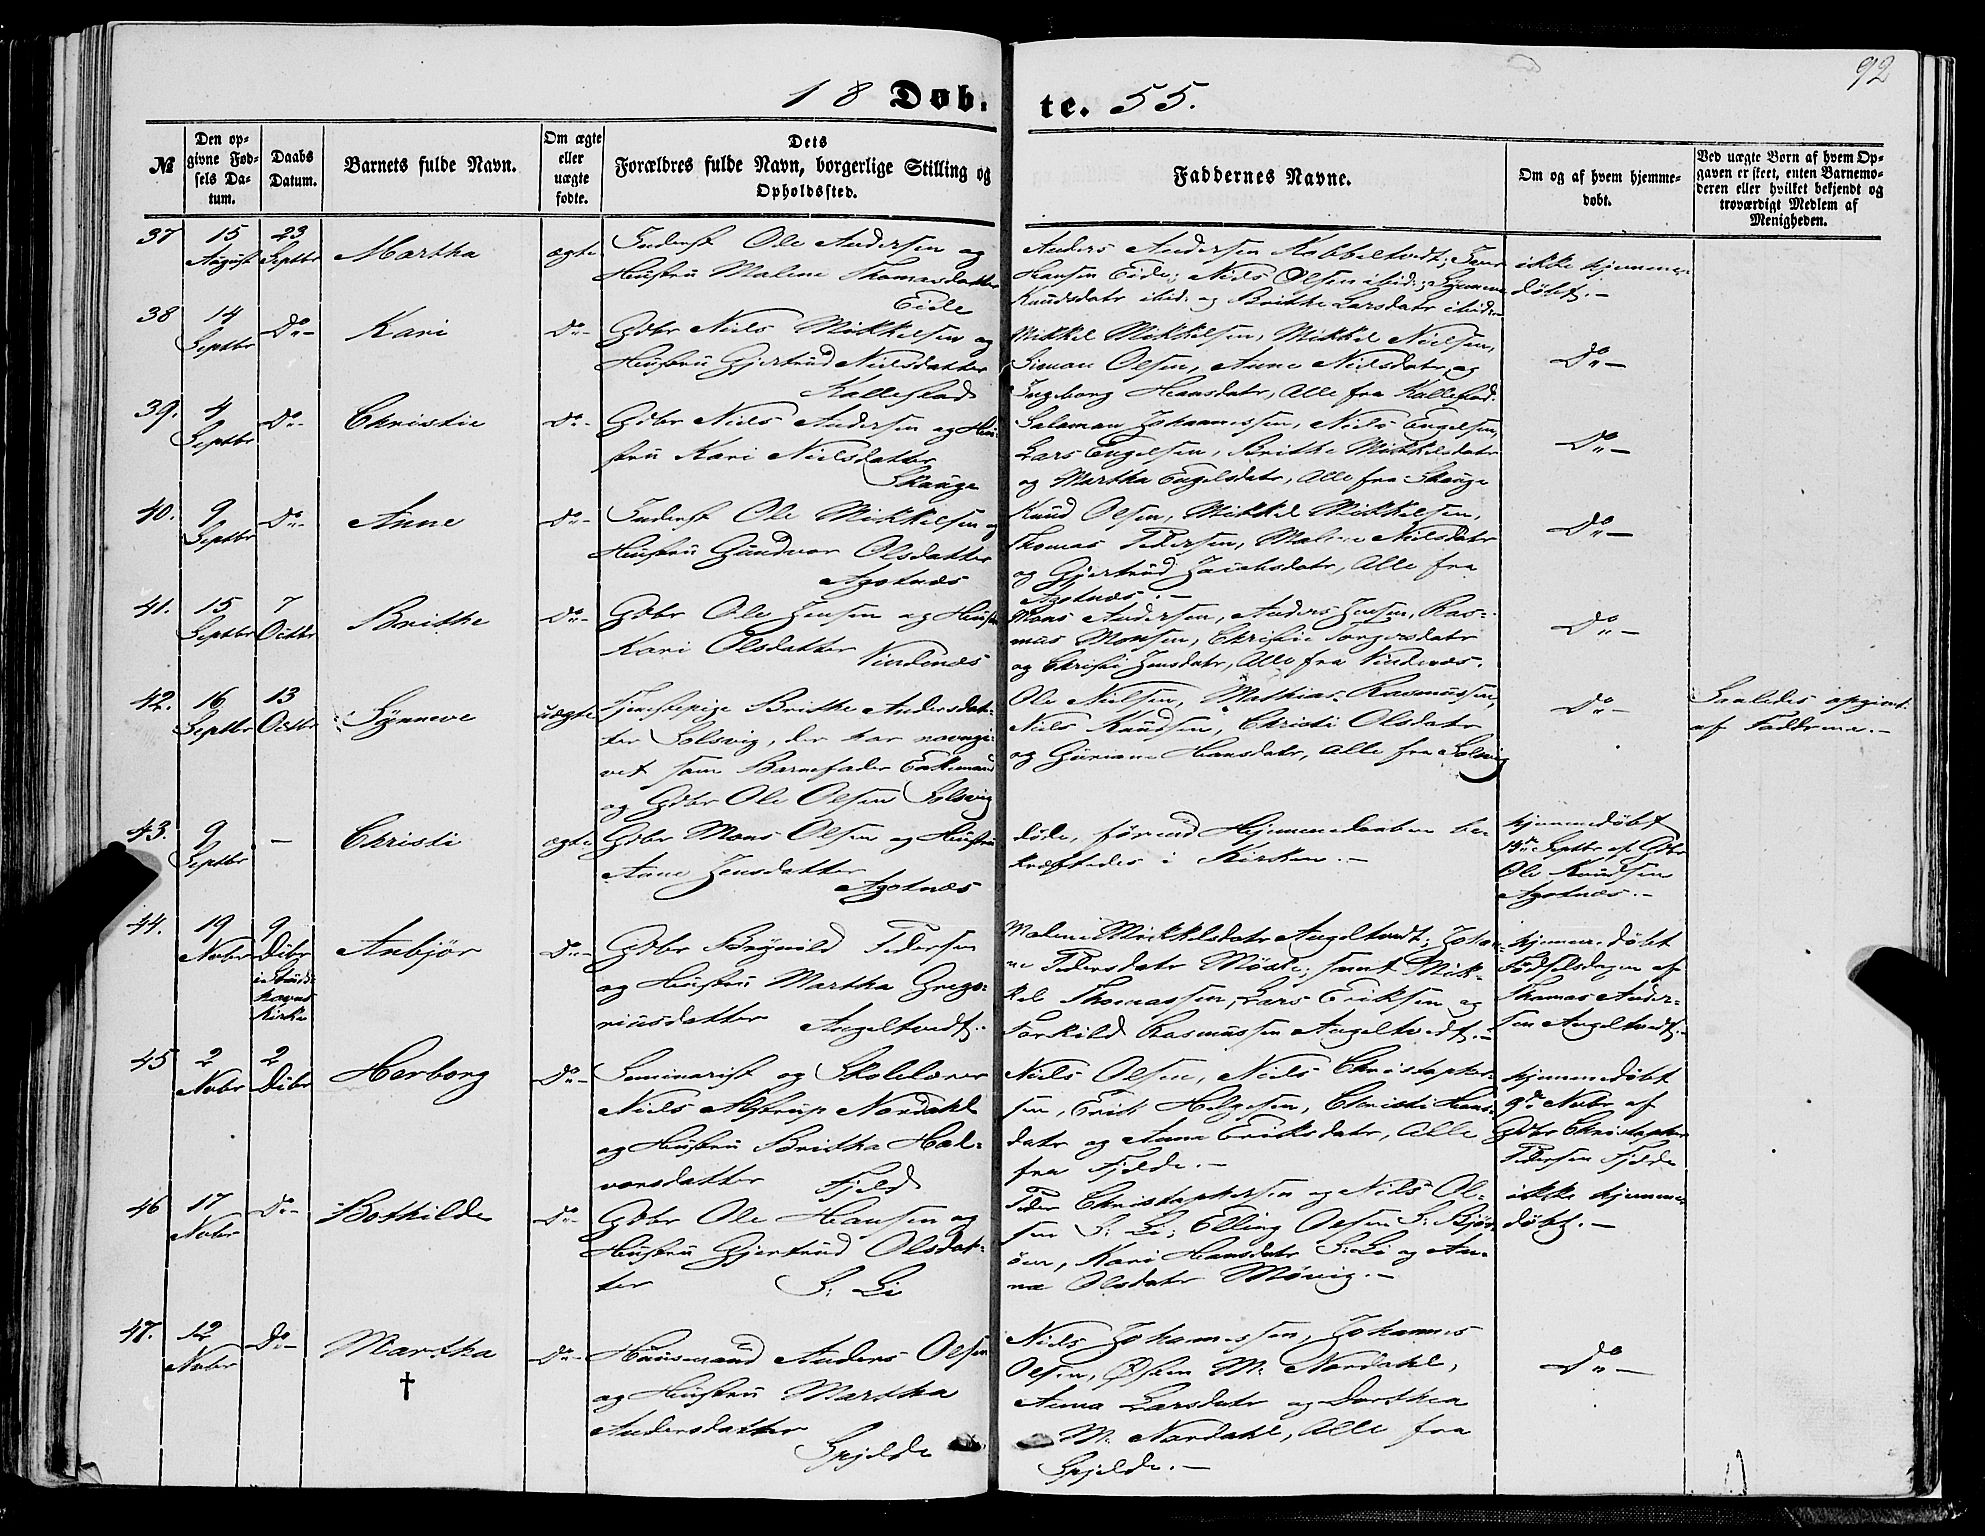 92
18 Døb- te. 55.
№
Den op-
givne Fød-
sels Da-
tum.
Daabs
Datum.
Barnets fulde Navn.
Om ægte
eller
uægte
fødte.
Dets
Forældres fulde Navn, borgerlige Stilling og
Opholdssted.
Faddernes Navne.
Om og af hvem hjemme-
døbt.
Ved uægte Børn af hvem Op-
gaven er skeet, enten Barnemo-
deren eller hvilket bekjendt og
troværdigt Medlem af
Menigheden.
37
15
August
23
Septbr
Martha
ægte
Inderst Ole Andersen og
Hustru Malene Thomasdatter
Eide
Anders Andersen Kobbeltvedt;
Hansen Eide; Niels Olsen ibid.; Synneve
Knudsdatr ibid. og Brithe Larsdatr ibid.
ikke hjemme-
døbt.-
38
14
Septbr
Do-
Kari
Do-
Gdbr Niels Mikkelsen og
Hustru Gjertrud Nielsdatter
Kallestad
Mikkel Mikkelsen, Mikkel Nielsen,
Simon Olsen, Anne Nielsdatr og
Ingeborg Hansdatr, Alle fra Kallestad.
Do-
39.
4
Septbr
Do-
Christie
Do-
Gdbr Niels Andersen og Hu-
stru Kari Nielsdatter
Skauge
Salamon Johannessen, Niels Engelsen,
Lars Engelsen, Brithe Mikkelsdatr
og Martha Engelsdatr, Alle fra Skauge
Do-
40.
9
Septbr
Do-
Anne
Do-
Inderst Ole Mikkelsen og
Hustru Gundvor Olsdatter
Agotnæs
Knud Olsen, Mikkel Mikkelsen,
Thomas Pedersen, Malene Nielsdatr
og Gjertrud Jacobsdatr, Alle fra
Agotnæs.-
Do-
41.
15
Septbr
7
Octbr
Brithe
Do-
Gdbr Ole Jensen og Hustru
Kari Olsdatter Vindenæs
Mons Andersen, Anders Jensen, Ras-
mus Monsen, Christie Torgersdatr
og Christi Jensdatr, Alle fra Vindenæs.
Do-
42.
16
Septbr
13
Octbr
Synneve
uægte
Tjenestepige Brithe Andersdat-
ter Solsvig, der har navngi-
vet som Barnefader Enkemand
og Gdbr Ole Olsen Solsvig
Ole Nielsen, Mathias Rasmussen,
Niels Knudsen, Christi Olsdatr
og Guriane Hansdatr, Alle fra Solsvig
Do-
Saaledes opgivet
af Fadderne.-
43.
9
Septbr
-
Christi
ægte
Gdbr Mons Olsen og Hustru
Anne Jensdatter
Agotnæs
døde, førend Hjemmedaaben be-
kræftedes i Kirken.-
hjemmedøbt
Septbr af Gdbr
Ole Knudsen
Agotnæs.-
44.
19
Nvbr
9
Dcbr
i Sund-
kirke
Anbjør
Do-
Gdbr Brynild Pedersen
og Hustru Martha Grego-
riusdatter Angeltvedt.-
Malene Mikkelsdatr Angeltvedt; Johan-
ne Pedersdatr Møste; samt Mik-
kel Thomassen, Lars Eriksen og
Torkild Rasmussen Angeltvedt.-
hjemmedøbt
Fødselsdagen af
Thomas Ander-
sen Angeltvedt.-
45
2
Nvbr
2
Dcbr
Herborg
Do-
Seminarist og Skolelærer
Niels Alstrup Nordahl
og Hustru Britha Hal-
vorsdatter Fjeld
Niels Olsen, Niels Christopher-
sen, Erik Helgesen, Christi Hans-
datr og Anna Eriksdatr, Alle
fra Fjelde.-
hjemmedøbt
9de Nvbr af
Gdbr Christopher
Pedersen Fjelde
46
17
Nvbr
Do-
Bothilde
Do-
Gdbr Ole Hansen og
Hustru Gjertrud Olsdat-
ter S: Li
Peder Christophersen og Niels Ol-
sen S: Li; Elling Olsen S: Bjør-
øen, Kari Hansdatr S: Li og An-
na Olsdatr Møvig.-
ikke hjemme-
døbt.-
47.
12
Nvbr
Do-
Martha
†
Do-
Huusmand Anders Olsen
og Hustru Martha
Andersdatter
Spjelde
Niels Johannessen, Johannes
Olsen, M. Nordahl,
Anna Larsdatr og Dorthea
M. Nordahl, Alle fra
Spjelde.-
Do-